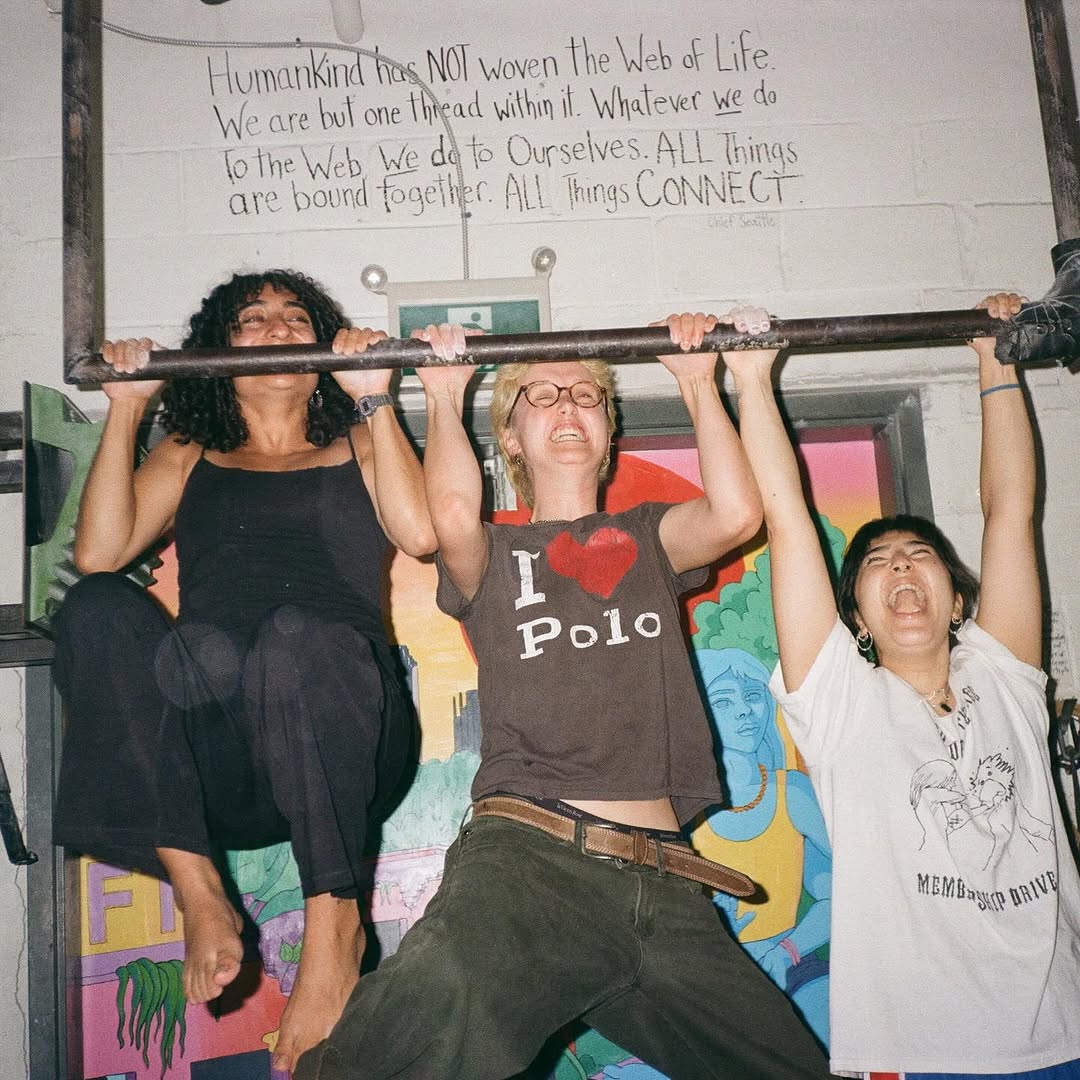 HumanKind has NOT woven the Web of Life.
We are but one thread within it. Whatever we do
To the Web, We do to Ourselves. ALL Things
are bound together. ALL Things CONNECT.
Chief Seattle
I
Polo
MEMBERSHIP DRIVE
FI